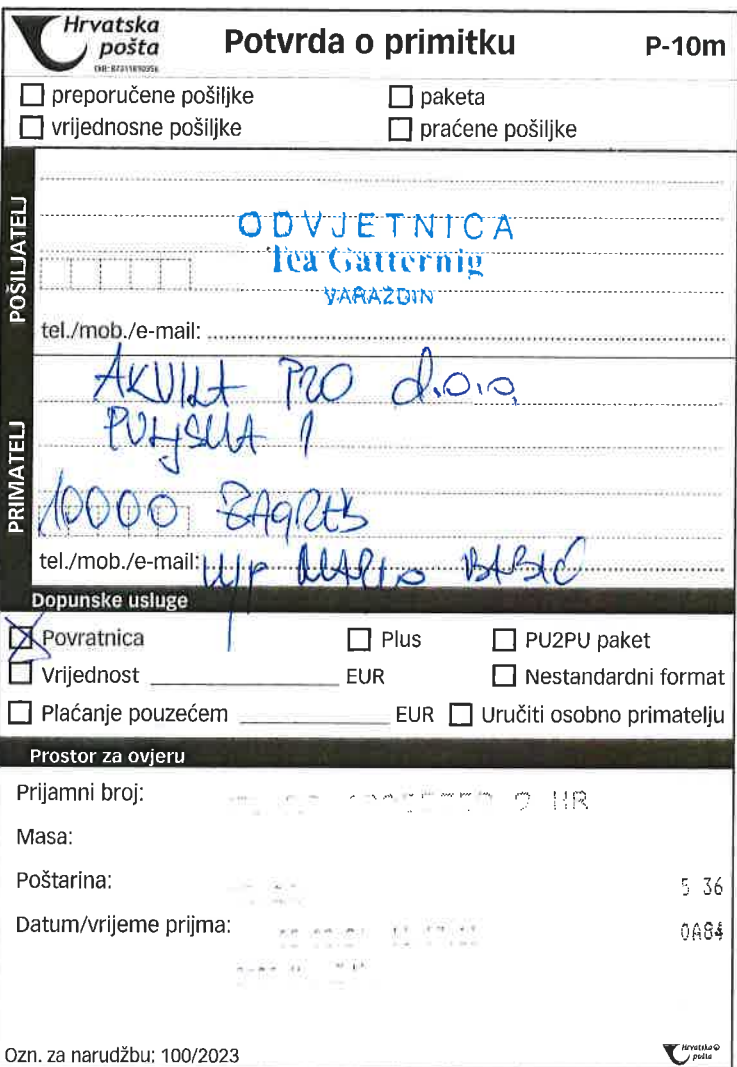 Hrvatska
pošta
Potvrda o primitku
P-10m
preporučene pošiljke
paketa
vrijednosne pošiljke
praćene pošiljke
POŠILJATELJ
ODVJETNICA
Tea Gatternig
VARAŽDIN
tel./mob./e-mail:
PRIMATELJ
AKVILA PRO d.o.o.
PULJSKA 1
10000 ZAGREB
tel./mob./e-mail: MARIO BABIĆ
Dopunske usluge
Povratnica
Plus
PU2PU paket
Vrijednost EUR
Nestandardni format
Plaćanje pouzećem EUR
Uručiti osobno primatelju
Prostor za ovjeru
Prijamni broj: HR
Masa:
Poštarina: 5 36
Datum/vrijeme prijma: 0A84
Ozn. za narudžbu: 100/2023
Hrvatska
pošta